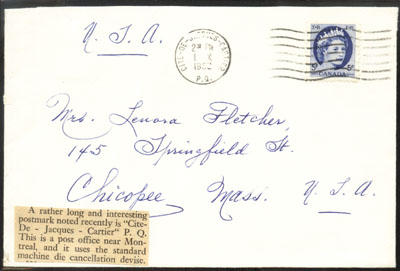 U. S. A.
CITE-DE-JACQUES-CARTIER
P.Q.
CANADA
Mrs. Lenora Fletcher,
145 Springfield St.
Chicopee Mass. U. S. A.
A rather long and interesting
postmark noted recently is "Cite-
De - Jacques - Cartier" P. Q.
This is a post office near Mon-
treal, and it uses the standard
machine die cancellation devise.